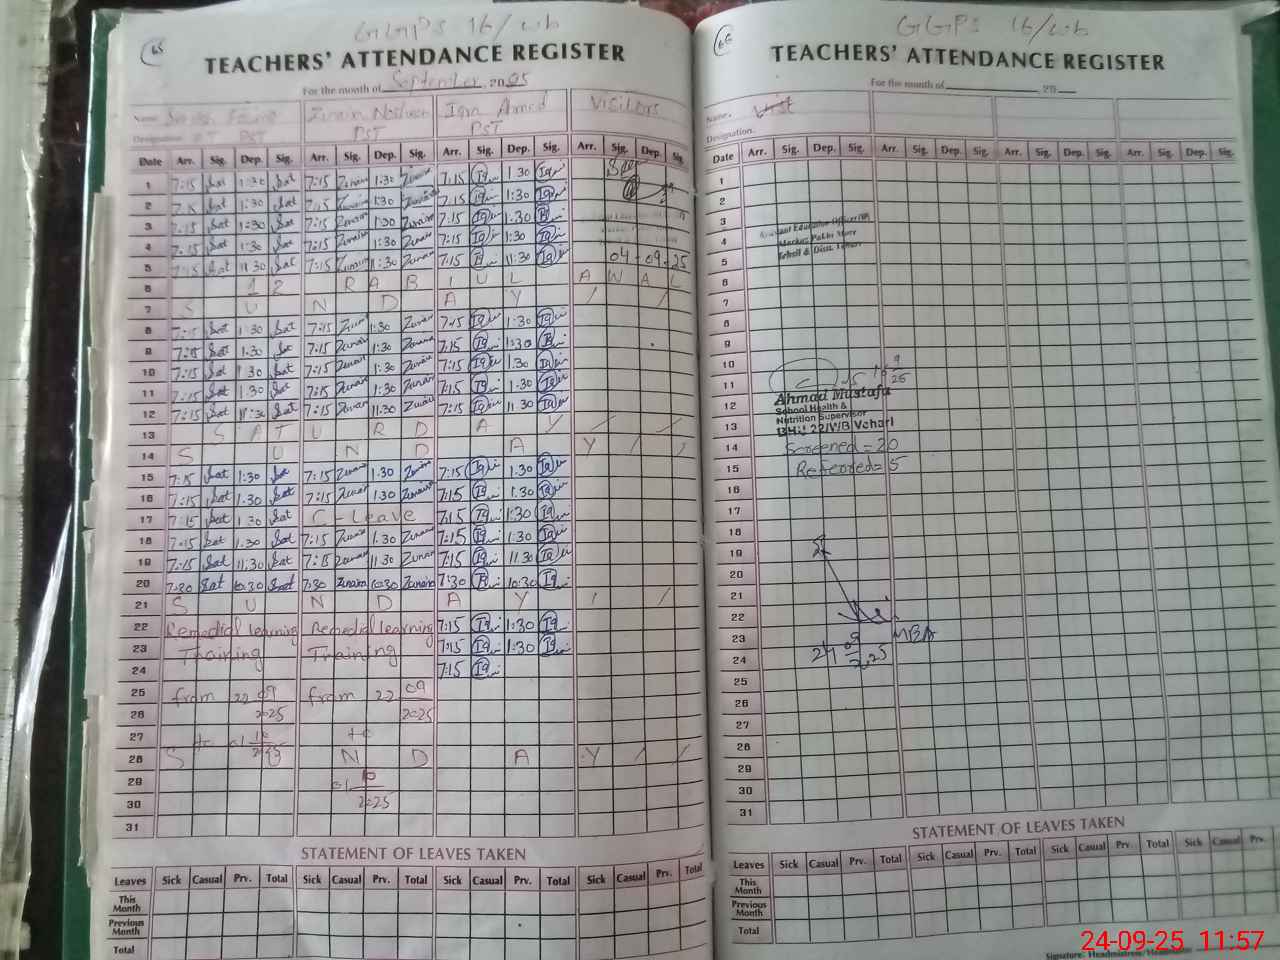 GGPS 16/wb
TEACHERS' ATTENDANCE REGISTER
For the month of September, 2025
Name Zunain Iqra Ahmed Visitors
Designation PST PST PST
Date Arr. Sig. Dep. Sig. Arr. Sig. Dep. Sig. Arr. Sig. Dep. Sig. Arr. Sig. Dep. Sig.
1 7:15 Sat 1:30 Sat 7:15 Zunain 1:30 Zunain 7:15 Iq 1:30 Iq
2 7:15 Sat 1:30 Sat 7:15 Zunain 1:30 Zunain 7:15 Iq 1:30 Iq
3 7:15 Sat 1:30 Sat 7:15 Zunain 1:30 Zunain 7:15 Iq 1:30 Iq
4 7:15 Sat 1:30 Sat 7:15 Zunain 1:30 Zunain 7:15 Iq 1:30 Iq
5 7:15 Sat 11:30 Sat 7:15 Zunain 11:30 Zunain 7:15 Iq 11:30 Iq 04-09-25
6 12 RABIUL AWAL
7 S U N D A Y / /
8 7:15 Sat 1:30 Sat 7:15 Zunain 1:30 Zunain 7:15 Iq 1:30 Iq
9 7:15 Sat 1:30 Sat 7:15 Zunain 1:30 Zunain 7:15 Iq 1:30 Iq
10 7:15 Sat 1:30 Sat 7:15 Zunain 1:30 Zunain 7:15 Iq 1:30 Iq
11 7:15 Sat 11:30 Sat 7:15 Zunain 1:30 Zunain 7:15 Iq 11:30 Iq
12 7:15 Sat 11:30 Sat 7:15 Zunain 11:30 Zunain 7:15 Iq 11:30 Iq
13 S A T U R D A Y / / /
14 S U N D A Y / / /
15 7:15 Sat 1:30 Sat 7:15 Zunain 1:30 Zunain 7:15 Iq 1:30 Iq
16 7:15 Sat 1:30 Sat 7:15 Zunain 1:30 Zunain 7:15 Iq 1:30 Iq
17 7:15 Sat 1:30 Sat C-Leave 7:15 Iq 1:30 Iq
18 7:15 Sat 1:30 Sat 7:15 Zunain 1:30 Zunain 7:15 Iq 1:30 Iq
19 7:15 Sat 11:30 Sat 7:15 Zunain 11:30 Zunain 7:15 Iq 11:30 Iq
20 7:30 Sat 10:30 Sat 7:30 Zunain 10:30 Zunain 7:30 Iq 10:30 Iq
21 S U N D A Y / /
22 Remedial learning Remedial learning 7:15 Iq 1:30 Iq
23 Training Training 7:15 Iq 1:30 Iq
24 7:15 Iq
25 from 22 09 from 22 09
26 2025 2025
27 to 01 10 to
28 S 2025 N D A Y / /
29 01 10
30 2025
31
STATEMENT OF LEAVES TAKEN
Leaves Sick Casual Prv. Total Sick Casual Prv. Total Sick Casual Prv. Total Sick Casual Prv. Total
This Month
Previous Month
Total
GGPS 16/wb
66
TEACHERS' ATTENDANCE REGISTER
For the month of , 20
Name. Visit
Designation.
Date Arr. Sig. Dep. Sig. Arr. Sig. Dep. Sig. Arr. Sig. Dep. Sig. Arr. Sig. Dep. Sig.
1
2
3
4
5
6
7
8
9
10
11
12
13
14
15
16
17
18
19
20
21
22
23
24
25
26
27
28
29
30
31
Assistant Education Officer
Markaz Pakhi Morr
Tehsil & Distt. Vehari
Ahmad Mustafa
School Health &
Nutrition Supervisor
BHU 22/WB Vehari
Screened = 20
Referred = 5
MEA
24 09
2025
STATEMENT OF LEAVES TAKEN
Leaves Sick Casual Prv. Total Sick Casual Prv. Total Sick Casual Prv. Total Sick Casual Prv.
This Month
Previous Month
Total
Signature: Headmistress/Headmaster
24-09-25 11:57